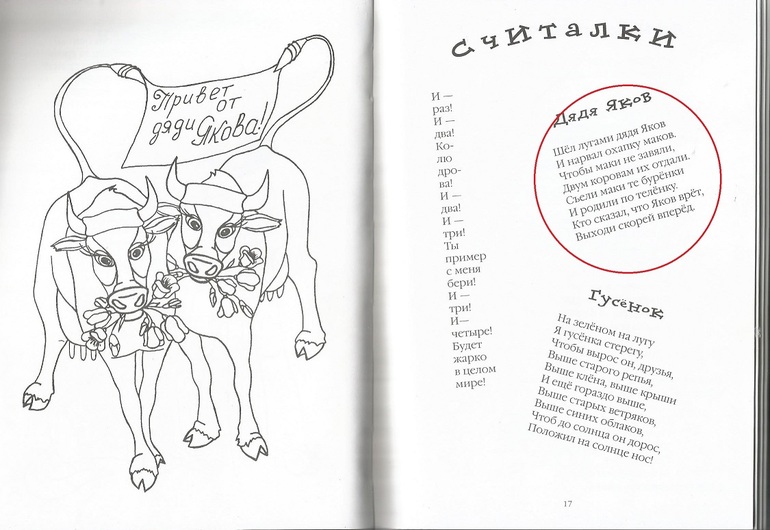 Привет
от
дяди Якова!
СЧИТАЛКИ
И —
раз!
И —
два!
Ко-
лю
дро-
ва!
И —
два!
И —
три!
Ты
пример
с меня
бери!
И —
три!
И—
четыре!
Будет
жарко
в целом
мире!
Дядя Яков
Шёл лугами дядя Яков
И нарвал охапку маков.
Чтобы маки не завяли,
Двум коровам их отдали.
Съели маки те бурёнки
И родили по телёнку.
Кто сказал, что Яков врёт,
Выходи скорей вперёд.
Гусёнок
На зелёном на лугу
Я гусёнка стерегу,
Чтобы вырос он, друзья,
Выше старого репья,
Выше клёна, выше крыши
И ещё гораздо выше,
Выше старых ветряков,
Выше синих облаков,
Чтоб до солнца он дорос,
Положил на солнце нос!
17